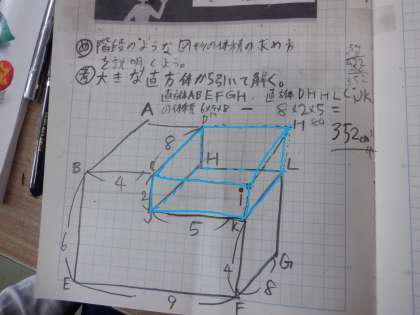 め 階段のような
の体積の求め方
を説明しよう。
考 大きな直方体から引いて解く。
直方体ABEFGH. 直方体DHHLCIJK
の体積 6×9×8 - 8×2×5=
80
352cm³
A
D
H
8
H
L
B
4
C
2
i
J
5
K
6
4
G
8
E
9
F